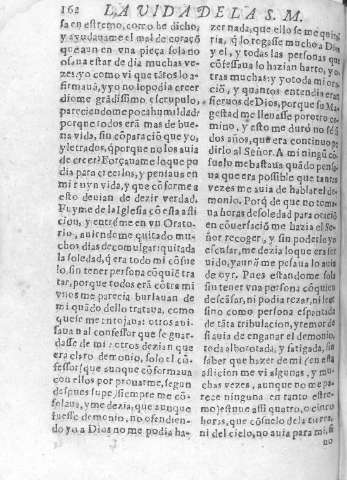 162 LA VIDA DE LA S. M.
sa en estremo, como he dicho,
y ayudauame el mal de coraçõ
que aun en vna pieça sola no
osaua estar de dia muchas ve-
zes: yo como vi que tãtos lo a-
firmauã, y yo no lo podia creer
diome grãdissimo escrupulo,
pareciendome poca humildad:
porque todos erã mas de bue-
na vida, sin cõparaciõ que yo,
y letrados, q̃ porque no los auia
de creer? Forçauame lo que po
dia para creerlos, y pensaua en
mi ruyn vida, y que cõforme a
esto deuian de dezir verdad.
Fuyme de la Iglesia cõ esta afli
cion, y entréme en vn Orato-
rio, auiendome quitado mu-
chos dias de comulgar: quitada
la soledad, q̃ era todo mi cõsue
lo, sin tener persona cõ quiẽ tra
tar, porque todos erã cõtra mi
vnos me parecia burlauan de
mi quãdo dello trataua, como
que se me antojaua: otros aui-
sauã al confessor que se guar-
dasse de mi: otros dezian que
era claro demonio, solo el cõ-
fessor (que aunque cõformaua
con ellos por prouarme, segun
despues supe) siempre me cõ-
solaua, y me dezia, que aunque
fuesse demonio, no ofendien-
do yo a Dios no me podia ha-
zer nada, que ello se me quita
ria, q̃ lo rogasse mucho a Dios
y el, y todas las personas que
cõfessaua lo hazian harto, y o-
tras muchas: y yo toda mi ora-
ciõ, y quantos entendia eran
sieruos de Dios, porque su Ma-
gestad me lleuasse por otro ca-
mino, y esto me duró no sé si
dos años, que era continuo pe-
dirlo al Señor. A mi ningũ cõ-
suelo me bastaua quãdo pensa-
ua que era possible que tantas
vezes me auia de hablar el de-
monio. Porq̃ de que no toma-
ua horas de soledad para oraciõ
en cõuersaciõ me hazia el Se-
ñor recoger, y sin poderlo yo
escusar, me dezia lo que era ser
uido, y aunq̃ me pesaua lo auia
de oyr. Pues estandome sola
sin tener vna persona cõ quien
descãsar, ni podia rezar, ni leer
sino como persona espantada
de tãta tribulacion, y temor de
si auia de enganar el demonio,
toda alborotada, y fatigada, sin
saber que hazer de mi (en esta
aflicion me vi algunas, y mu-
chas vezes, aunque no me pa-
rece ninguna en tanto estre-
mo) estuue assi quatro, o cinco
horas, que cõsuelo de la tierra,
ni del cielo, no auia para mi, si
no